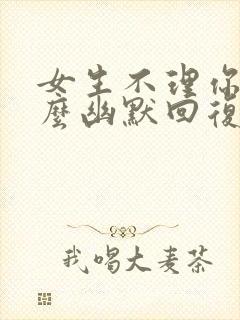 女生不理你
麼幽默回復
我喝大麦茶